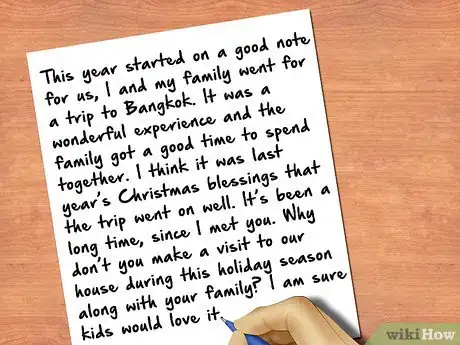 This year started on a good note
for us, I and my family went for
a trip to Bangkok. It was a
wonderful experience and the
family got a good time to spend
together. I think it was last
year's Christmas blessings that
the trip went on well. It's been a
long time, since I met you. Why
don't you make a visit to our
house during this holiday season
along with your family? I am sure
kids would love it.
wikiHow